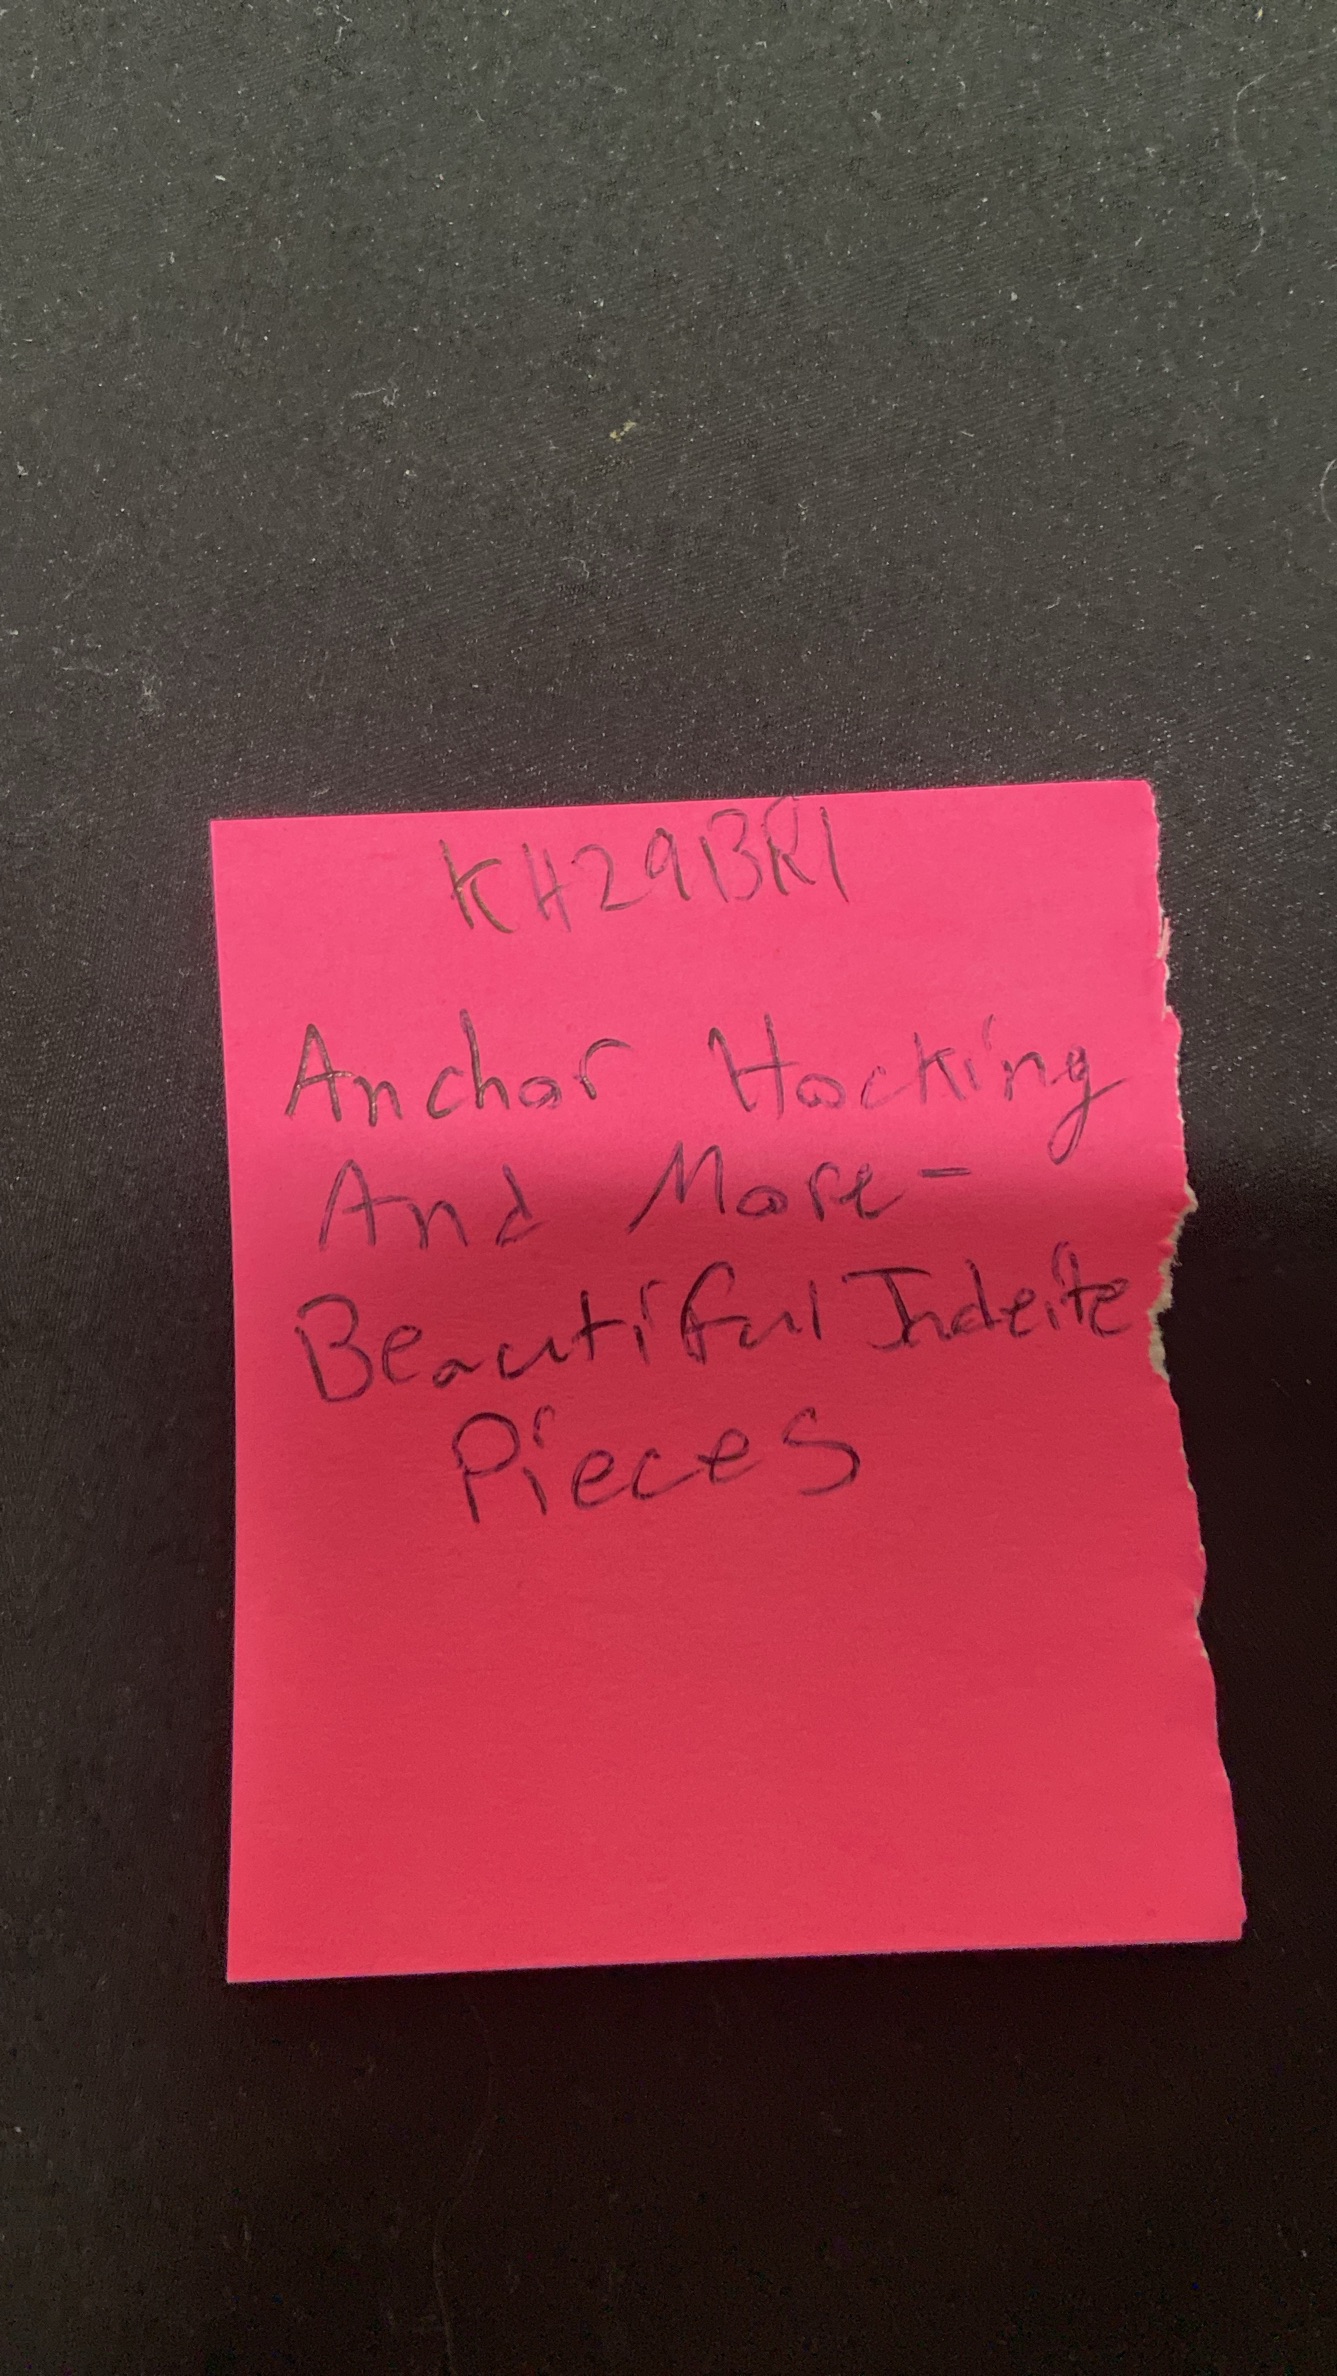 KH29BR1
Anchor Hocking
And More-
Beautiful Jadeite
Pieces